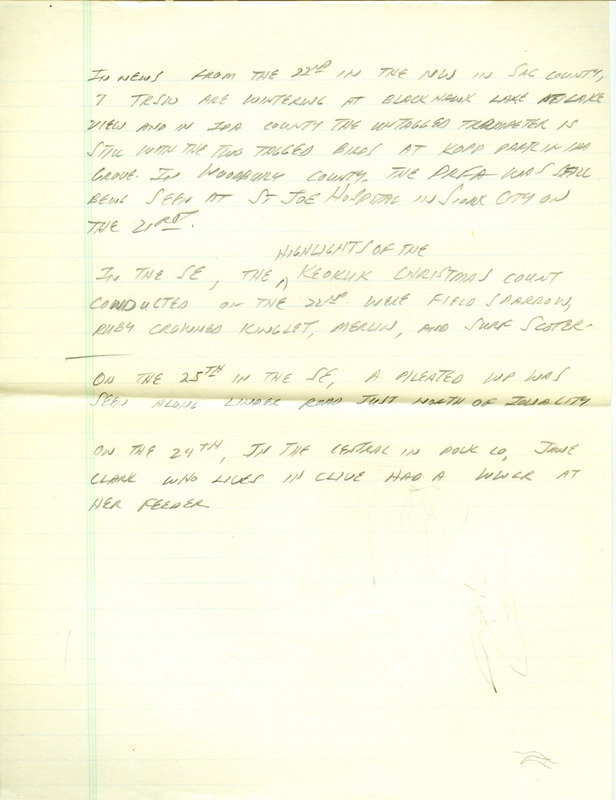 IN NEWS FROM THE 22ND IN THE NW IN SAC COUNTY,
7 TRSW ARE WINTERING AT BLACK HAWK LAKE AT LAKE
VIEW AND IN IDA COUNTY THE UNTAGGED TRUMPETER IS
STILL WITH THE TWO TAGGED BIRDS AT KOPP PARK IN IDA
GROVE. IN WOODBURY COUNTY, THE PRFA WAS STILL
BEING SEEN AT ST JOE HOSPITAL IN SIOUX CITY ON
THE 21RST.
HIGHLIGHTS OF THE
IN THE SE, THE ^ KEOKUK CHRISTMAS COUNT
CONDUCTED ON THE 22ND WERE FIELD SPARROW,
RUBY CROWNED KINGLET, MERLIN, AND SURF SCOTER
ON THE 25TH IN THE SE, A PILEATED WP WAS
SEEN ALONG LINDER ROAD JUST NORTH OF IOWA CITY
ON THE 24TH, IN THE CENTRAL IN POLK CO, JANE
CLARK WHO LIVES IN CLIVE HAD A WWCR AT
HER FEEDER